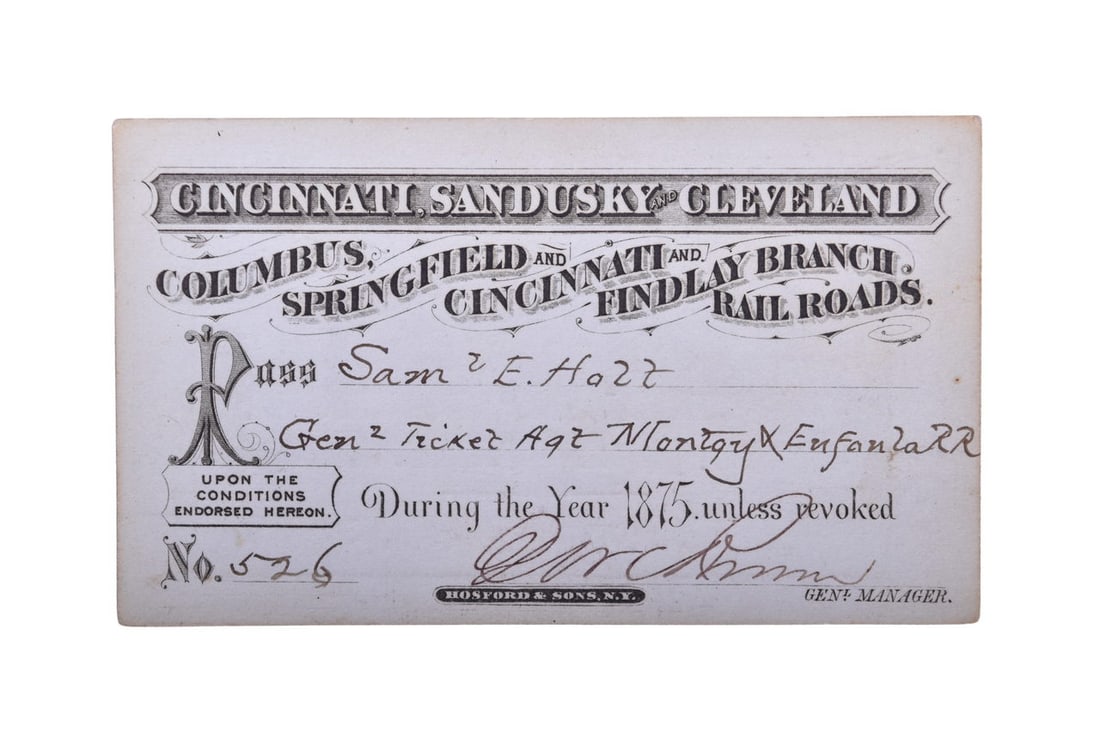 CINCINNATI, SANDUSKY AND CLEVELAND
COLUMBUS, SPRINGFIELD AND CINCINNATI AND FINDLAY BRANCH RAIL ROADS.
Pass Saml E. Holt
Genl Ticket Agt Montgy & Eufaula RR
UPON THE
CONDITIONS
ENDORSED HEREON.
During the Year 1875. unless revoked
No. 526
HOSFORD & SONS, N.Y.
GENL MANAGER.